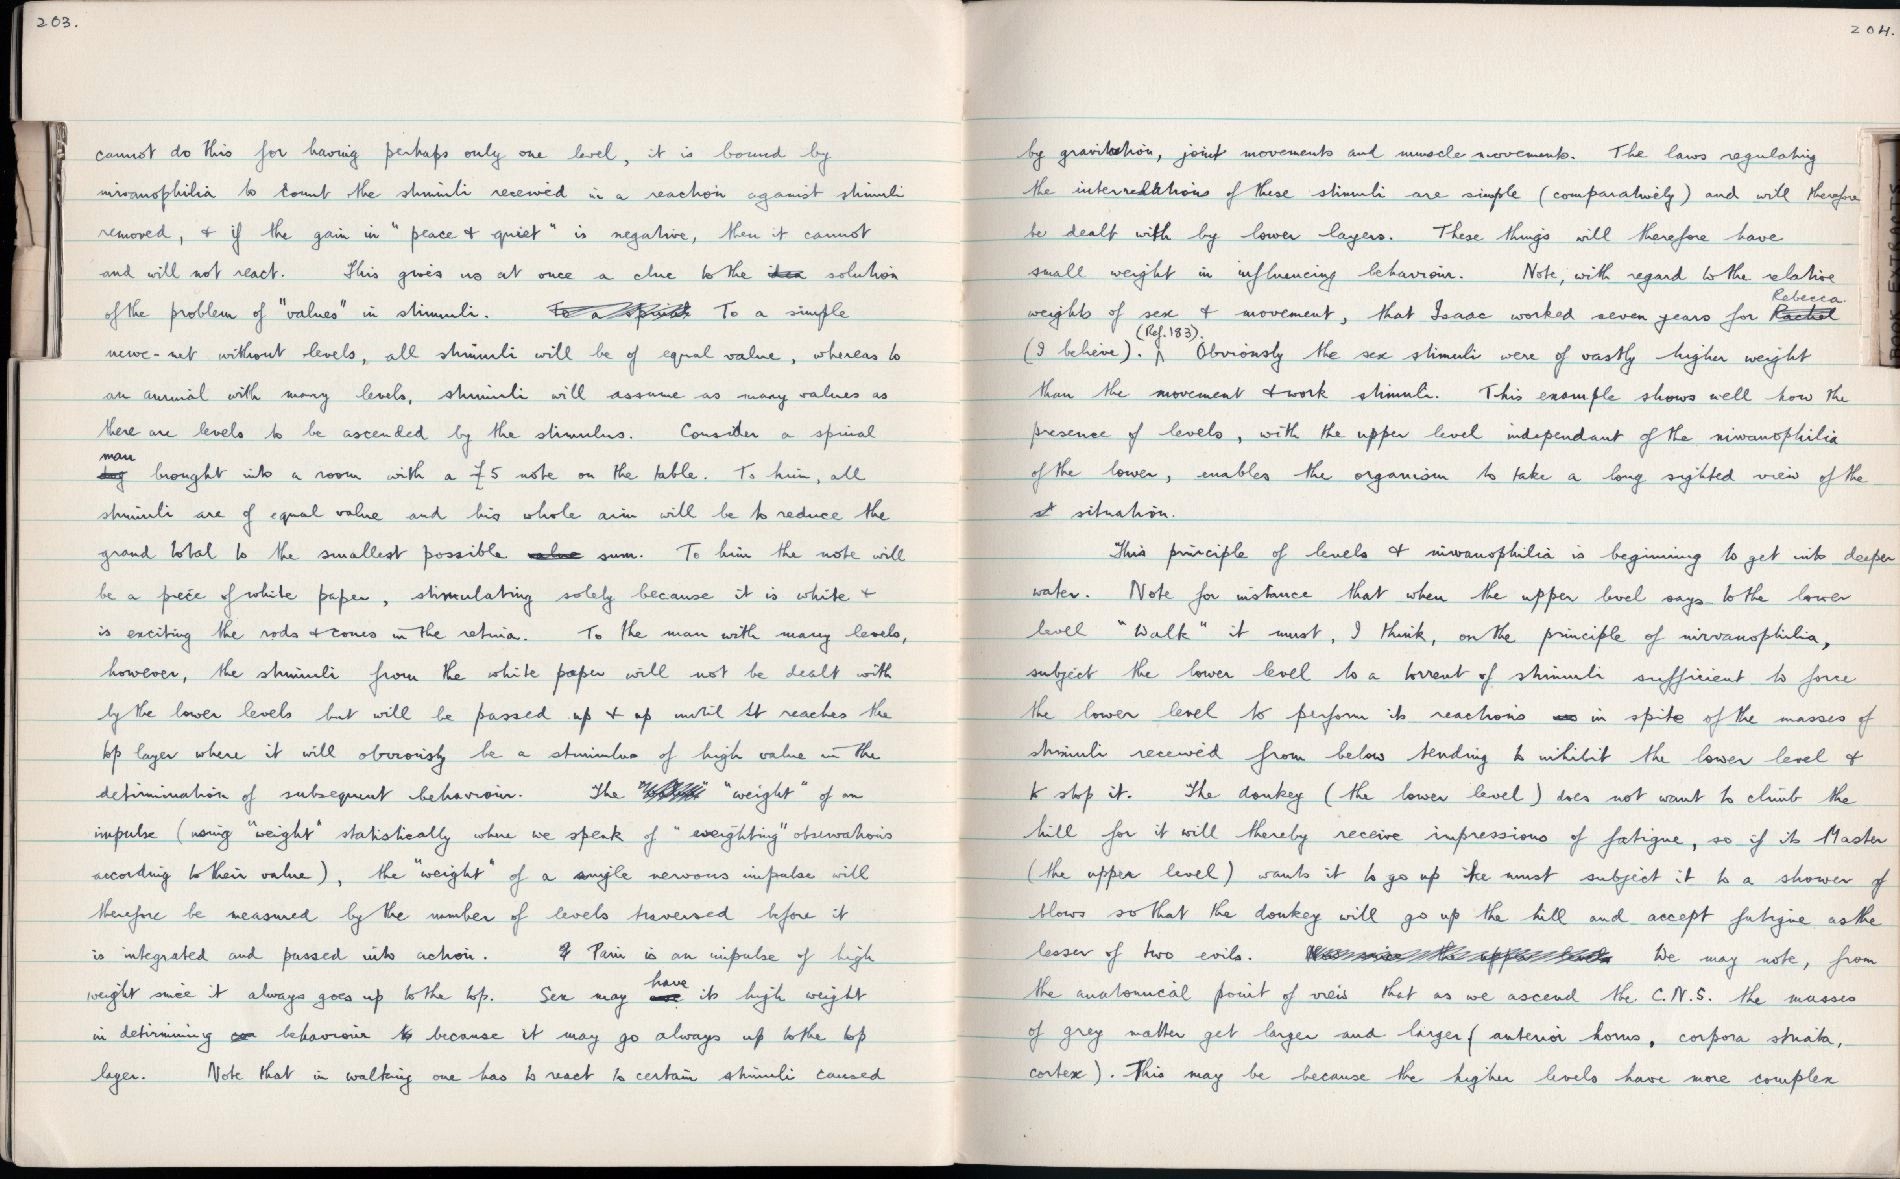 203.
cannot do this for having perhaps only one level, it is bound by
nirvanophilia to count the stimuli received in a reaction against stimuli
removed, & if the gain in "peace & quiet" is negative, then it cannot
and will not react. This gives us at once a clue to the idea solution
of the problem of "values" in stimuli. To a spinal To a simple
nerve-net without levels, all stimuli will be of equal value, whereas to
an animal with many levels, stimuli will assume as many values as
there are levels to be ascended by the stimulus. Consider a spinal
man
dog brought into a room with a £5 note on the table. To him, all
stimuli are of equal value and his whole aim will be to reduce the
grand total to the smallest possible value sum. To him the note will
be a piece of white paper, stimulating solely because it is white &
is exciting the rods & cones in the retina. To the man with many levels,
however, the stimuli from the white paper will not be dealt with
by the lower levels but will be passed up & up until it reaches the
top layer where it will obviously be a stimulus of high value in the
detirmination of subsequent behaviour. The "weight" of an
impulse (using "weight" statistically where we speak of "weighting" observations
according to their value), the "weight" of a single nervous impulse will
therefore be measured by the number of levels traversed before it
is integrated and passed into action. Pain is an impulse of high
weight since it always goes up to the top. Sex may have its high weight
in detirmining behaviour because it may go always up to the top
layer. Note that in walking one has to react to certain stimuli caused
204.
by gravitation, joint movements and muscle movements. The laws regulating
the interrelations of these stimuli are simple (comparatively) and will therefore
be dealt with by lower layers. These things will therefore have
small weight in influencing behaviour. Note, with regard to the relative
Rebecca.
weights of sex & movement, that Isaac worked seven years for Rachel
(Ref. 183).
(I believe). Obviously the sex stimuli were of vastly higher weight
than the movement & work stimuli. This example shows well how the
presence of levels, with the upper level independant of the nirvanophilia
of the lower, enables the organism to take a long sighted view of the
st situation.
This principle of levels & nirvanophilia is beginning to get into deeper
water. Note for instance that when the upper level says to the lower
level "Walk" it must, I think, on the principle of nirvanophilia,
subject the lower level to a torrent of stimuli sufficient to force
the lower level to perform its reactions in spite of the masses of
stimuli received from below tending to inhibit the lower level &
to stop it. The donkey (the lower level) does not want to climb the
hill for it will thereby receive impressions of fatigue, so if its Master
(the upper level) wants it to go up he must subject it to a shower of
blows so that the donkey will go up the hill and accept fatigue as the
lesser of two evils. We may note, from
the anatomical point of view that as we ascend the C.N.S. the masses
of grey matter get larger and larger (anterior horns, corpora striata,
cortex). This may be because the higher levels have more complex